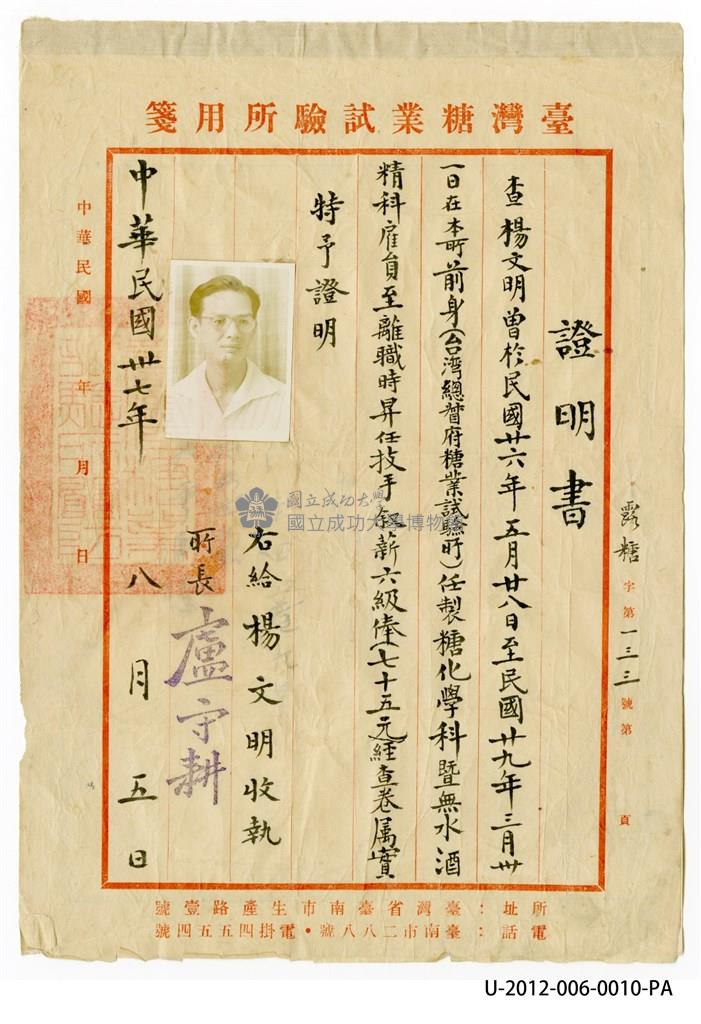 臺灣糖業試驗所用箋
露糖字第一三三號第 頁
證明書
查楊文明曾於民國廿六年五月廿八日至民國廿九年三月卅
一日在本所前身(台湾總督府糖業試驗所)任製糖化学科暨無水酒
精科雇員至離職時昇任技手 薪六級俸(七十五元經查卷属實
特予證明
右給楊文明收執
所長 盧守耕
中華民國卅七年八月五日
中華民國 年 月 日
所址：臺灣省臺南市生產路壹號
電話：臺南市二八八號・電掛四五五四號
國立成功大學
國立成功大學博物館
U-2012-006-0010-PA